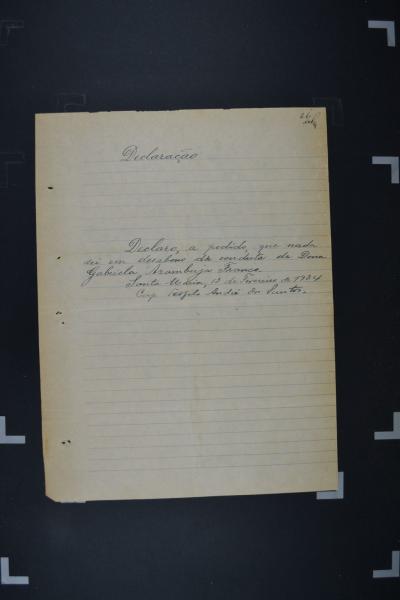 26
Declaração
Declaro, a pedido, que nada
sei em desabono da conducta de Dona
Gabriela Aramburja Franco
Santa Maria, 13 de Fevereiro de 1934
Cap André dos Santos.